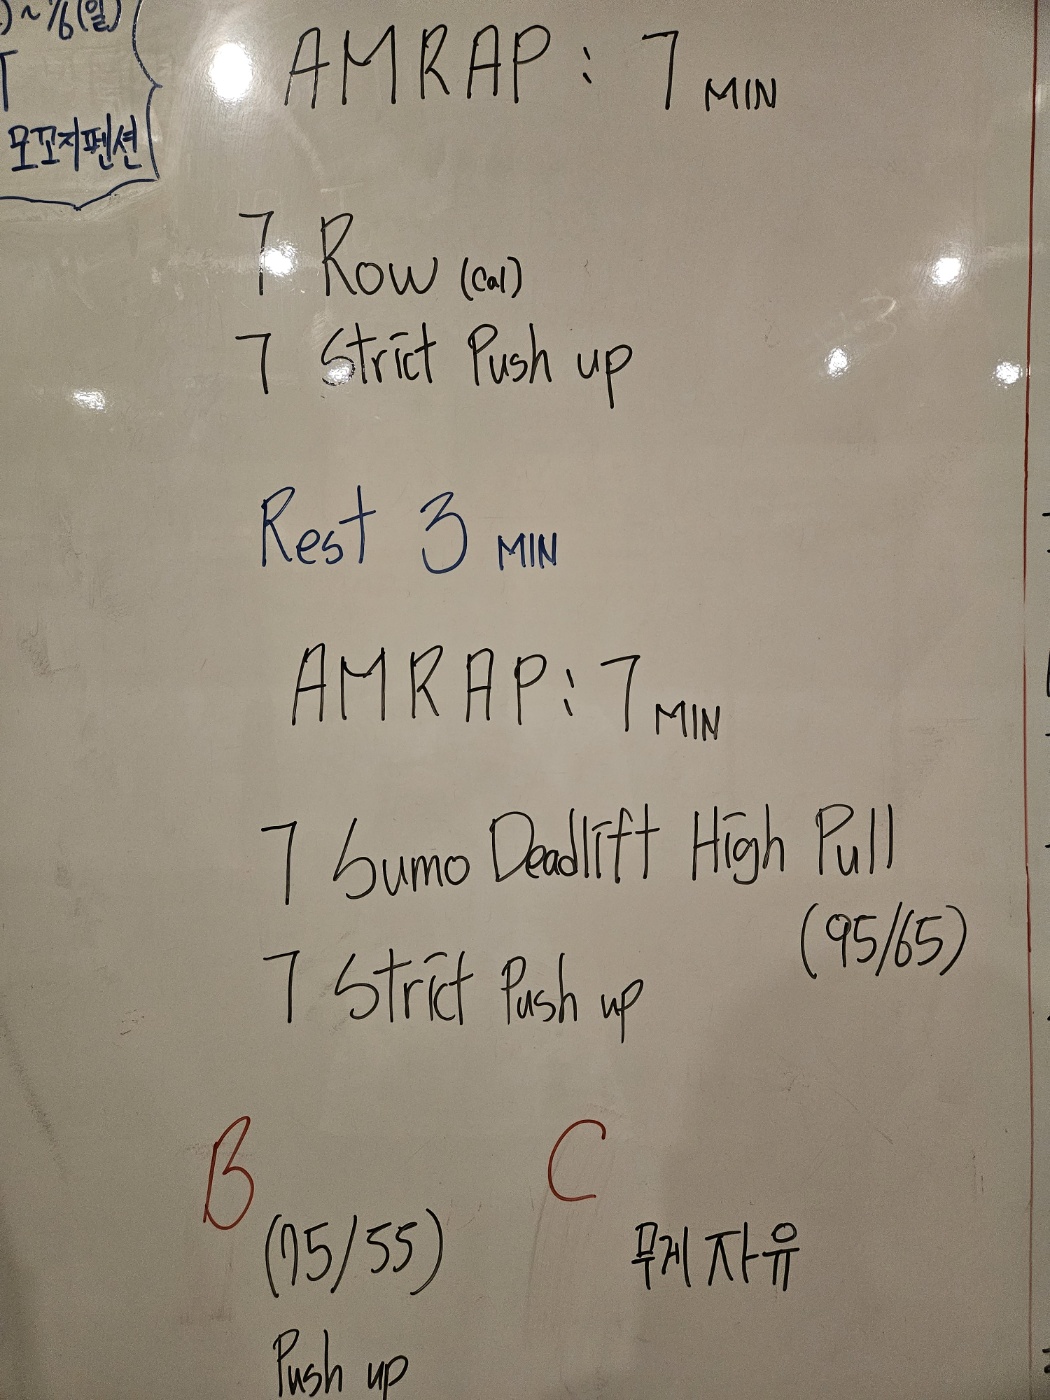 ~ 7/6(일)
모꼬지펜션
AMRAP : 7 MIN
7 Row (Cal)
7 Strict Push up
Rest 3 MIN
AMRAP : 7 MIN
7 Sumo Deadlift High Pull
(95/65)
7 Strict Push up
B
(75/55)
Push up
C
무게 자유